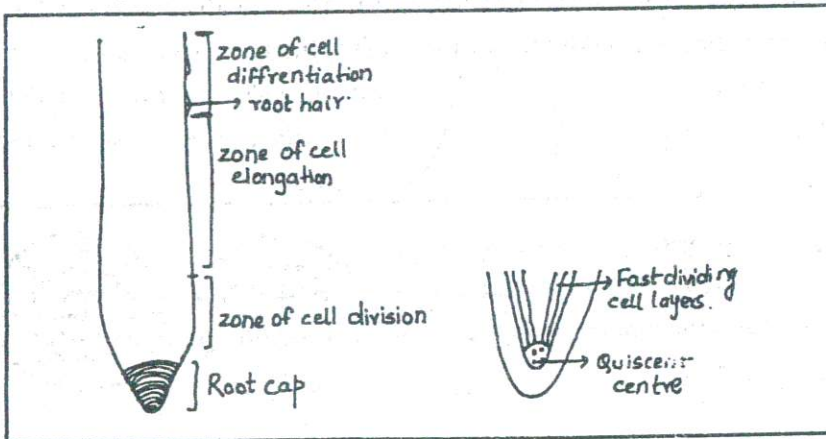 zone of cell
diffrentiation
root hair
zone of cell
elongation
zone of cell division
Root cap
Fast dividing
cell layers.
Quiscent
centre